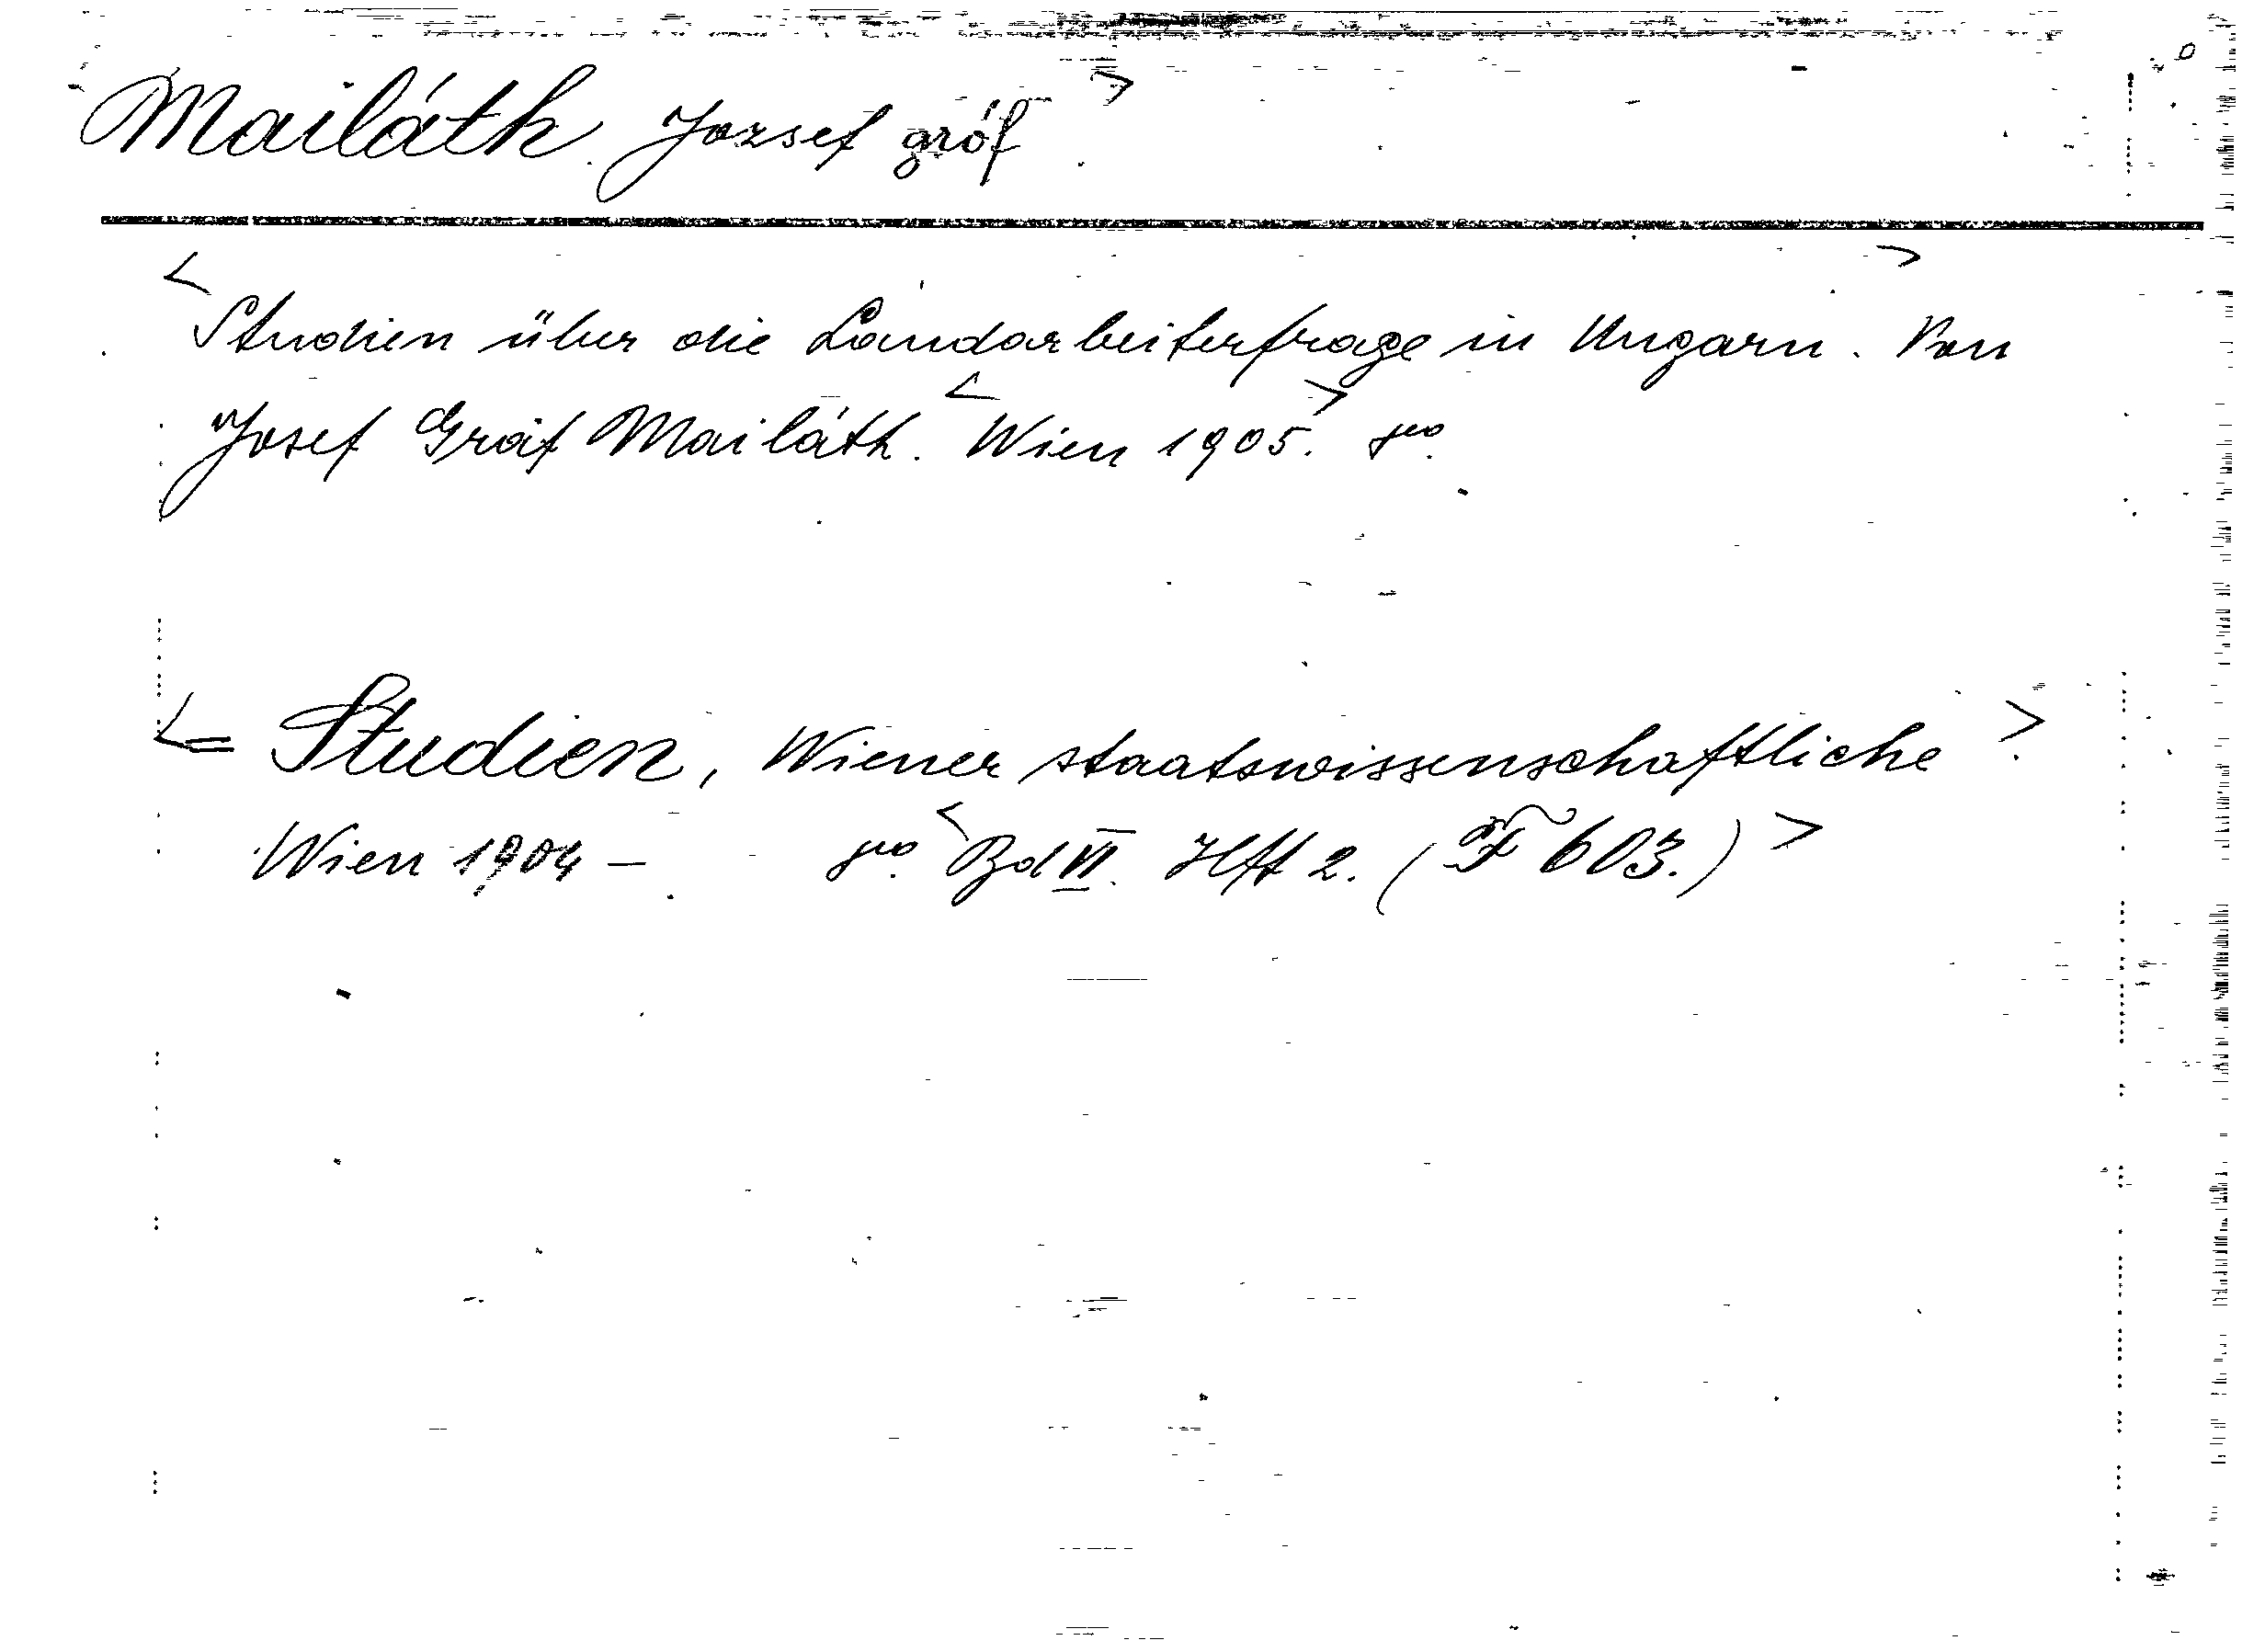 Mailáth József gróf >
< Studien über die Landarbeiterfrage in Ungarn. > Von
Josef Graf Mailáth. < Wien 1905. > 8vo.
<= Studien, Wiener staatswissenschaftliche >
Wien 1904 – 8vo. < Bd VI. Hft 2. (F 603.) >